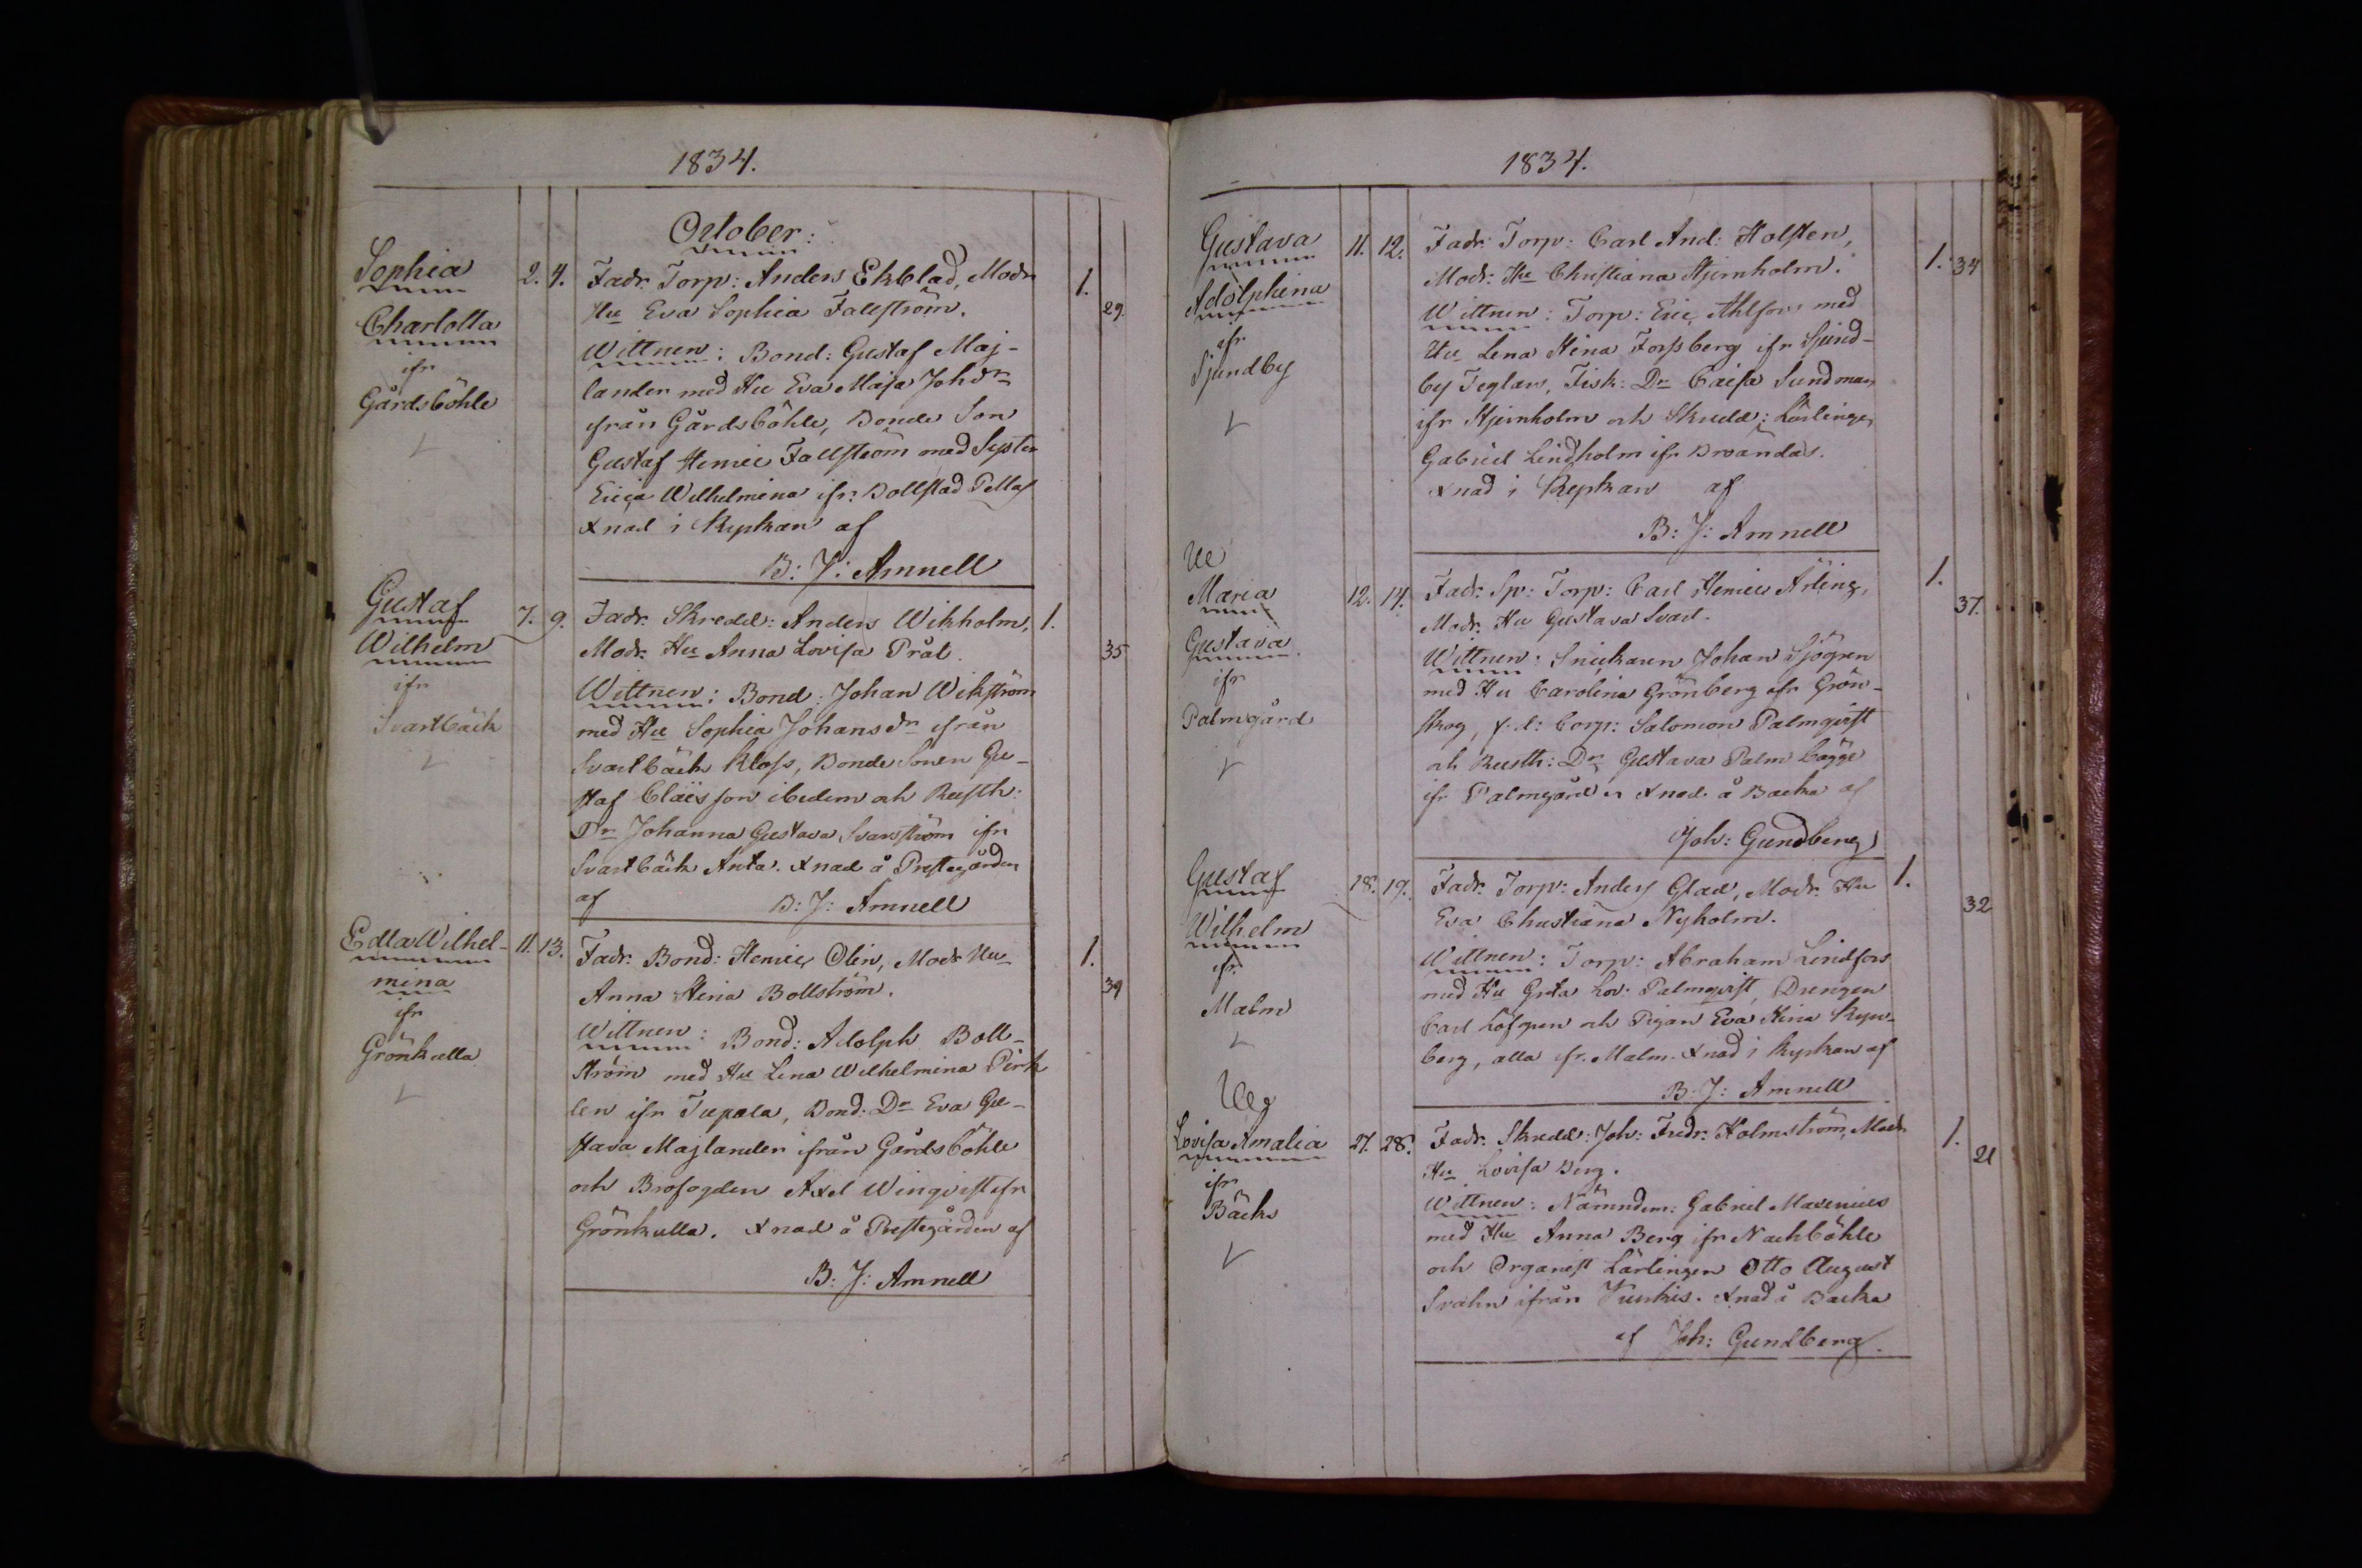 1834.
October:
Sophia
Charlotta
ifr
Gårdsböhle
2. 4.
Fadr. Torp: Anders Ekblad, Modr
Hu Eva Sophia Fallström.
Wittnen: Bond: Gustaf Maj-
lander med Hu Eva Maja Johdr
ifrån Gårdsböhle, Bonde Son
Gustaf Henric Fallström med Syster
Erica Wilhelmina ifr: Bollstad Pellas
Xnad i Kyrkan af
B: J: Amnell
1.
29.
Gustaf
Wilhelm
ifr
Svartbäck
7. 9.
Fadr. Skredd: Anders Wikholm,
Modr. Hu Anna Lovisa Prål.
Wittnen: Bond: Johan Wikström
med Hu Sophia Johansdr ifrån
Svartbäck Klass, Bonde Sonen Gu-
staf Claësson ibidem och Rusth:
Dr Johanna Gustava Svanström ifr
Svartbäck Anta. Xnad å Prestegården
af B: J: Amnell
1.
35
Edla Wilhel-
mina
ifr
Grönkulla
11. 13.
Fadr. Bond: Henric Olin, Modr Hu
Anna Stina Bollström.
Wittnen: Bond: Adolph Boll-
ström med Hu Lena Wilhelmina Pirk
len ifr Tupala, Bond: Dr Eva Gu-
stava Majlander ifrån Gårdsböhle
och Brofogden Axel Winqvist ifr
Grönkulla. Xnad å Prestegården af
B: J: Amnell
1.
39
1834.
Gustava
Adolphina
ifr
Sjundby
11. 12.
Fadr. Torp: Carl And: Holsten,
Modr. Hu Christiana Stjernholm.
Wittnen: Torp: Eric Ahlfors med
Hu Lena Stina Forssberg ifr Sjund-
by Teglars, Fisk: Dr Caisa Sundman
ifr Stjernholm och Skredd: Lärlingen
Gabriel Lindholm ifr Broändas.
Xnad i Kyrkan af
B: J: Amnell
1. 34
Ue
Maria
Gustava
ifr
Palmgård
12. 14.
Fadr. Sp: Torp: Carl Henric Ärling,
Modr. Hu Gustava Svart.
Wittnen: Snickaren Johan Sjögren
med Hu Carolina Grönberg ifr Grön-
skog, f.d: Corpr: Salomon Palmqvist
och Rusth: Dr Gustava Palm bägge
ifr Palmgård. Xnad å Backa af
Joh: Gundberg
1.
37.
Gustaf
Wilhelm
ifr
Malm
18. 19.
Fadr. Torp: Anders Glad, Modr. Hu
Eva Christiana Nyholm.
Wittnen: Torp: Abraham Lindfors
med Hu Greta Lov: Palmqvist, Drengen
Carl Löfgren och Pigan Eva Stina Ryn-
berg, alla ifr. Malm. Xnad i Kyrkan af
B: J: Amnell
1.
32
Ueg
Lovisa Amalia
ifr
Bäcks
27. 28.
Fadr. Skredd: Joh: Fredr: Holmström, Modr
Hu Lovisa Berg.
Wittnen: Nämndem: Gabriel Maxenius
med Hu Anna Berg ifr Nackböhle
och Organist Lärlingen Otto August
Svahn ifrån Junkis. Xnad å Backa
af Joh: Gundberg.
1.
21